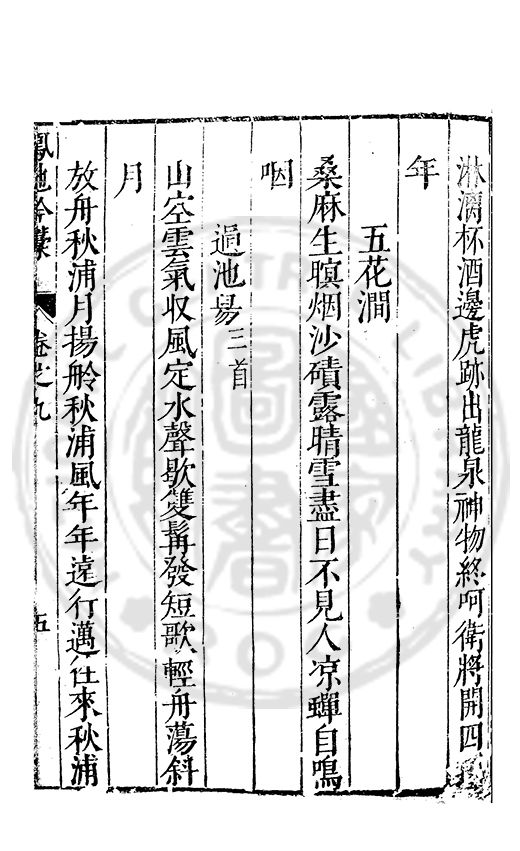 淋漓杯酒邊虎跡出龍泉神物終呵衛將開四
年
五花澗
桑麻生暝烟沙磧露晴雪盡日不見人凉蟬自鳴
咽
過池昜三首
山空雲氣収風定水聲歇雙髯發短歌輕舟蕩斜
月
放舟秋浦月揚舲秋浦風年年遠行邁徃來秋浦
鳳池吟藁 卷之九 五